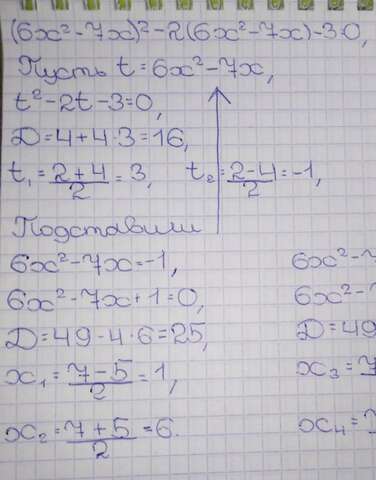 (6x²-7x)²-2(6x²-7x)-3=0,
Пусть t=6x²-7x,
t²-2t-3=0,
D=4+4·3=16,
t₁=(2+4)/2=3, t₂=(2-4)/2=-1,
Подставим
6x²-7x=-1,
6x²-7x+1=0,
D=49-4·6=25,
x₁=(7-5)/2=1,
x₂=(7+5)/2=6.
6x²-
6x²-
D=49
x₃=7
x₄=